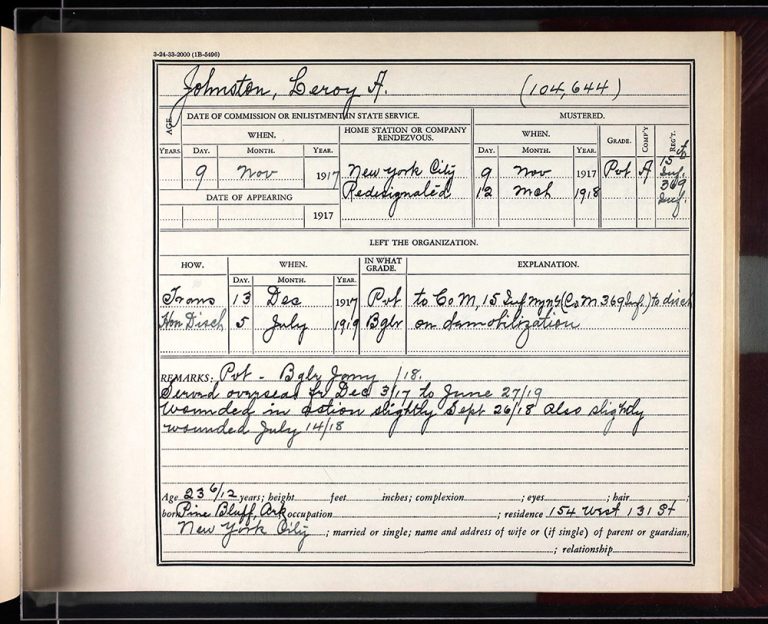 3-24-33-2000 (1B-5496)
Johnston, Leroy A. (104,644)
AGE DATE OF COMMISSION OR ENLISTMENT IN STATE SERVICE. MUSTERED.
WHEN. HOME STATION OR COMPANY RENDEZVOUS. WHEN. GRADE. COMP'Y REG'T.
YEARS DAY. MONTH. YEAR. DAY. MONTH. YEAR.
9 Nov 1917 New York City 9 Nov 1917 Pvt A 15 Inf.
DATE OF APPEARING Redesignated 12 Mch 1918 369 Inf.
1917
LEFT THE ORGANIZATION.
HOW. WHEN. IN WHAT GRADE. EXPLANATION.
DAY. MONTH. YEAR.
Trans 13 Dec 1917 Pvt to Co M, 15 Inf NYNG (Co M 369 Inf.) to disch
Hon Disch 5 July 1919 Bglr on demobilization
REMARKS: Pvt - Bglr /18.
Served overseas fr Dec 3/17 to June 27/19
Wounded in action slightly Sept 26/18 Also slightly
wounded July 14/18
Age 23 6/12 years; height feet inches; complexion ; eyes ; hair ;
born Pine Bluff, Ark occupation ; residence 154 West 131 St
New York City ; married or single; name and address of wife or (if single) of parent or guardian,
; relationship